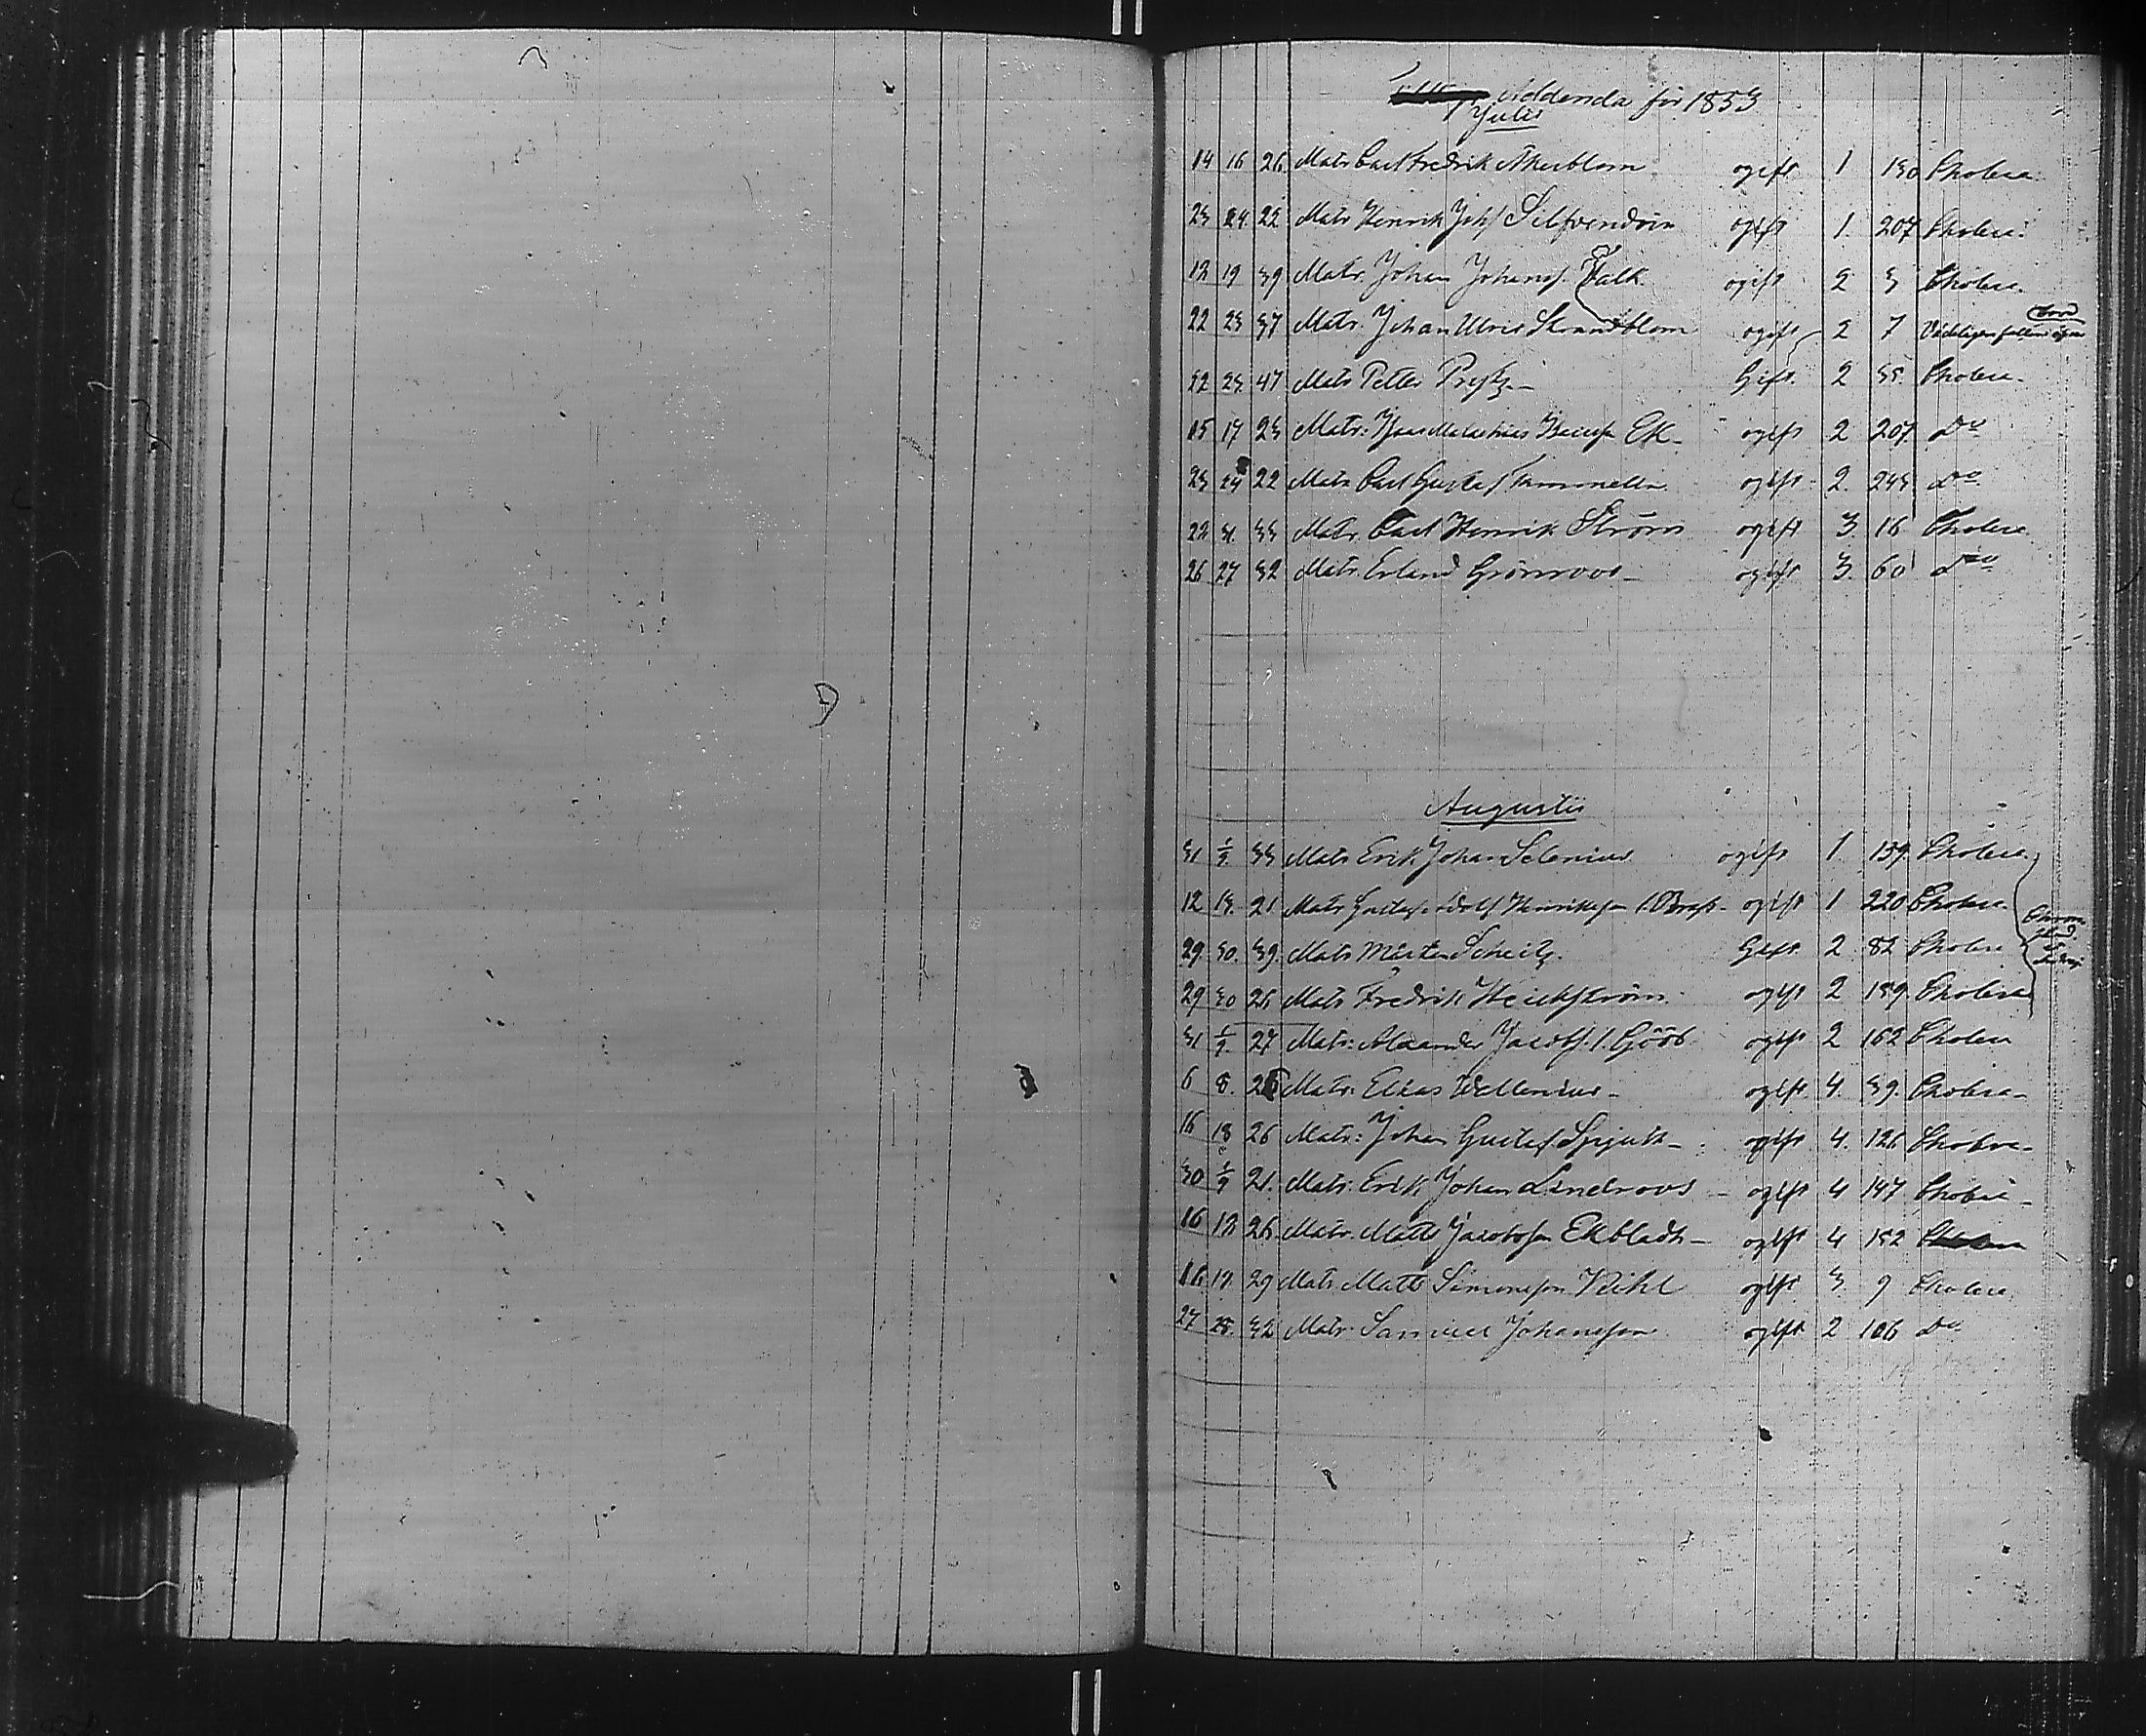 Addenda för 1853
Julii
14 16 26 Matr Carl Fredrik Åkerblom ogift 1 130 Cholera
23 24 22 Matr Henrik Johs Silfvendoin ogift 1. 207 Cholera
12 19 39 Matr. Johan Johans. Falk ogift 2 3 Cholera.
22 23 37 Matr. Johan Ulric Strandblom ogift 2 7 bord
22 23 47 Matr Petter Gift. 2 35. Cholera.
15 17 23 Matr: Ek ogift 2 207 Do
23 24 22 Matr Carl Gustaf Tammelin ogift 2. 243 Do
22 31. 33 Matr. Carl Henrik Ström ogift 3. 16 Cholera
26 27 32 Matr. Erland Grönroos ogift 3. 60 Do
Augusti
31 1/9. 33 Matr Erik Johan Selenius ogift 1. 139. Cholera.
12 13. 21 Matr Gustaf Adolf Henriksson ogift 1 220 Cholera.
29. 30. 39. Matr Mårten Scheitz. Gift. 2 82 Cholera
29 30 26 Matr Fredrik Heickström. ogift 2 159. Cholera
31 1/9. 27 Matr: Alexander Jacobs. ogift 2 162 Cholera
6 8. 26 Matr: Elias Wallenius ogift 4. 39. Cholera
16 18 26 Matr: Johan Gustaf Spjuth ogift 4. 126 Cholera
30 1/9 21. Matr: Erik Johan Lindroos ogift 4 147 Cholera
16 18 26. Matr. Matts Jacobsson Ekbladh ogift 4 152
16. 17. 29 Matr Matts Simonsson Kihl ogift 3 9 Cholera
27 28. 32 Matr. Samuel Johansson ogift 2 106 Do